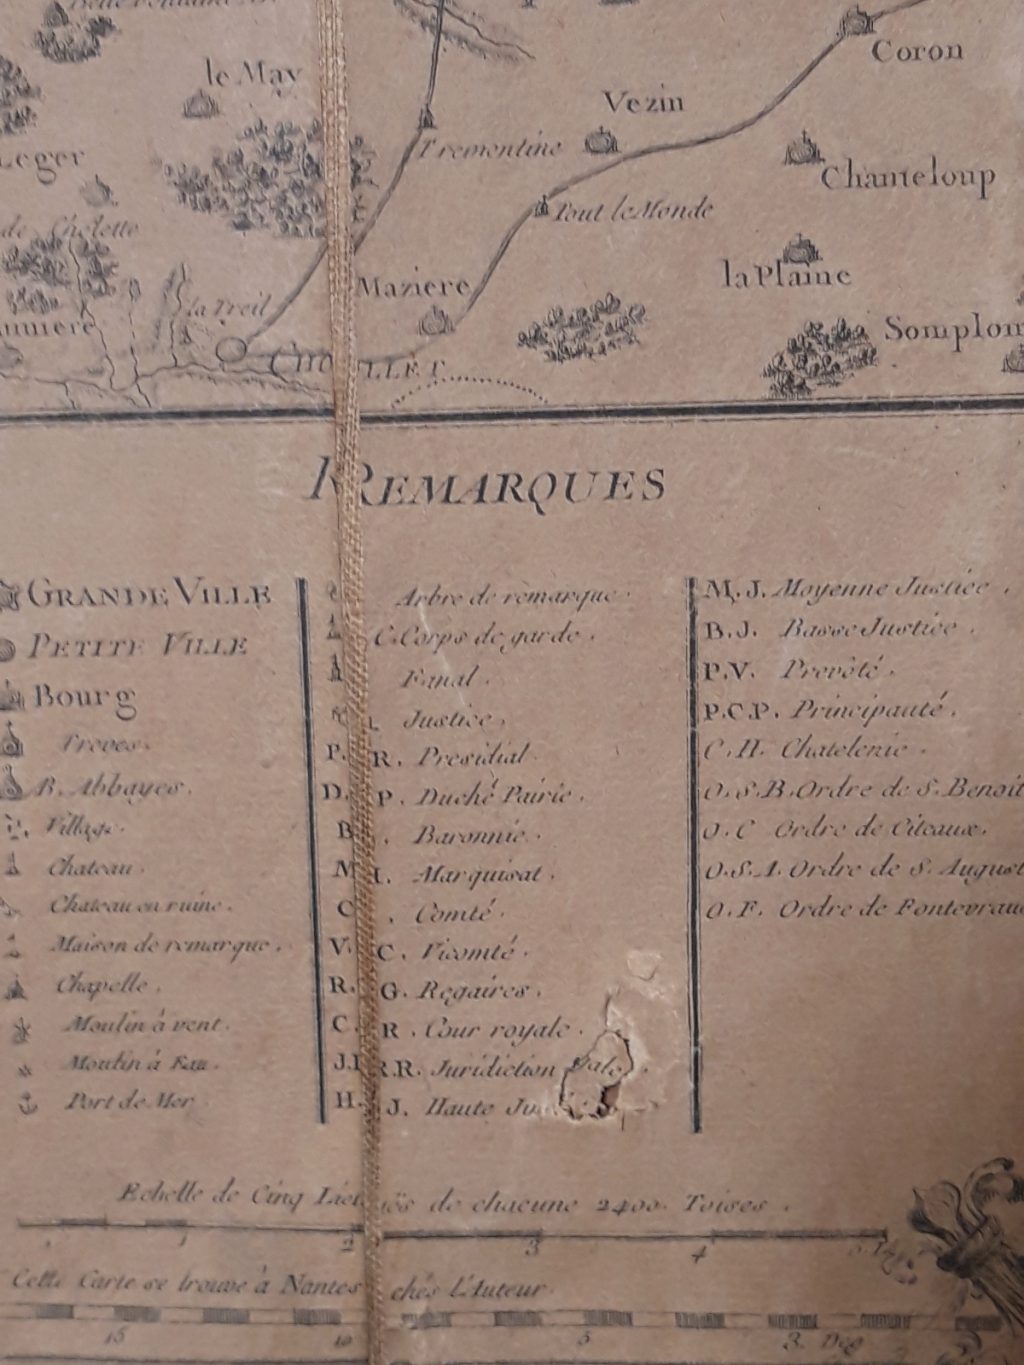 le May
Coron
Vezin
Leger
Trementine
Chanteloup
de Cholette
Tout le Monde
Maziere
la Plaine
la Treil
Somploin
CHOLLET
REMARQUES
GRANDE VILLE
PETITE VILLE
Bourg
Treves.
B. Abbayes.
Village.
Chateau.
Chateau en ruine.
Maison de remarque.
Chapelle.
Moulin à vent.
Moulin à Eau.
Port de Mer
Arbre de remarque.
C. Corps de garde.
Fanal.
Justice,
P. R. Presidial
D. P. Duché Pairie.
B. Baronnie.
M. Marquisat.
C. Comté.
V. C. Vicomté.
R. G. Regaires.
C. R. Cour royale.
J. R. R. Juridiction
H. J. Haute
M. J. Moyenne Justice.
B. J. Basse Justice
P. V. Prevôté.
P. C. P. Principauté.
C. H. Chatelenie.
O. S. B. Ordre de S. Benoit
O. C Ordre de Citeaux.
O. S. A. Ordre de S. August
O. F. Ordre de Fontevraud
Echelle de Cinq Lieuës de chacune 2400. Toises.
1 2 3 4
Cette Carte se trouve à Nantes chés L'Auteur.
15 10 5 3. Deg